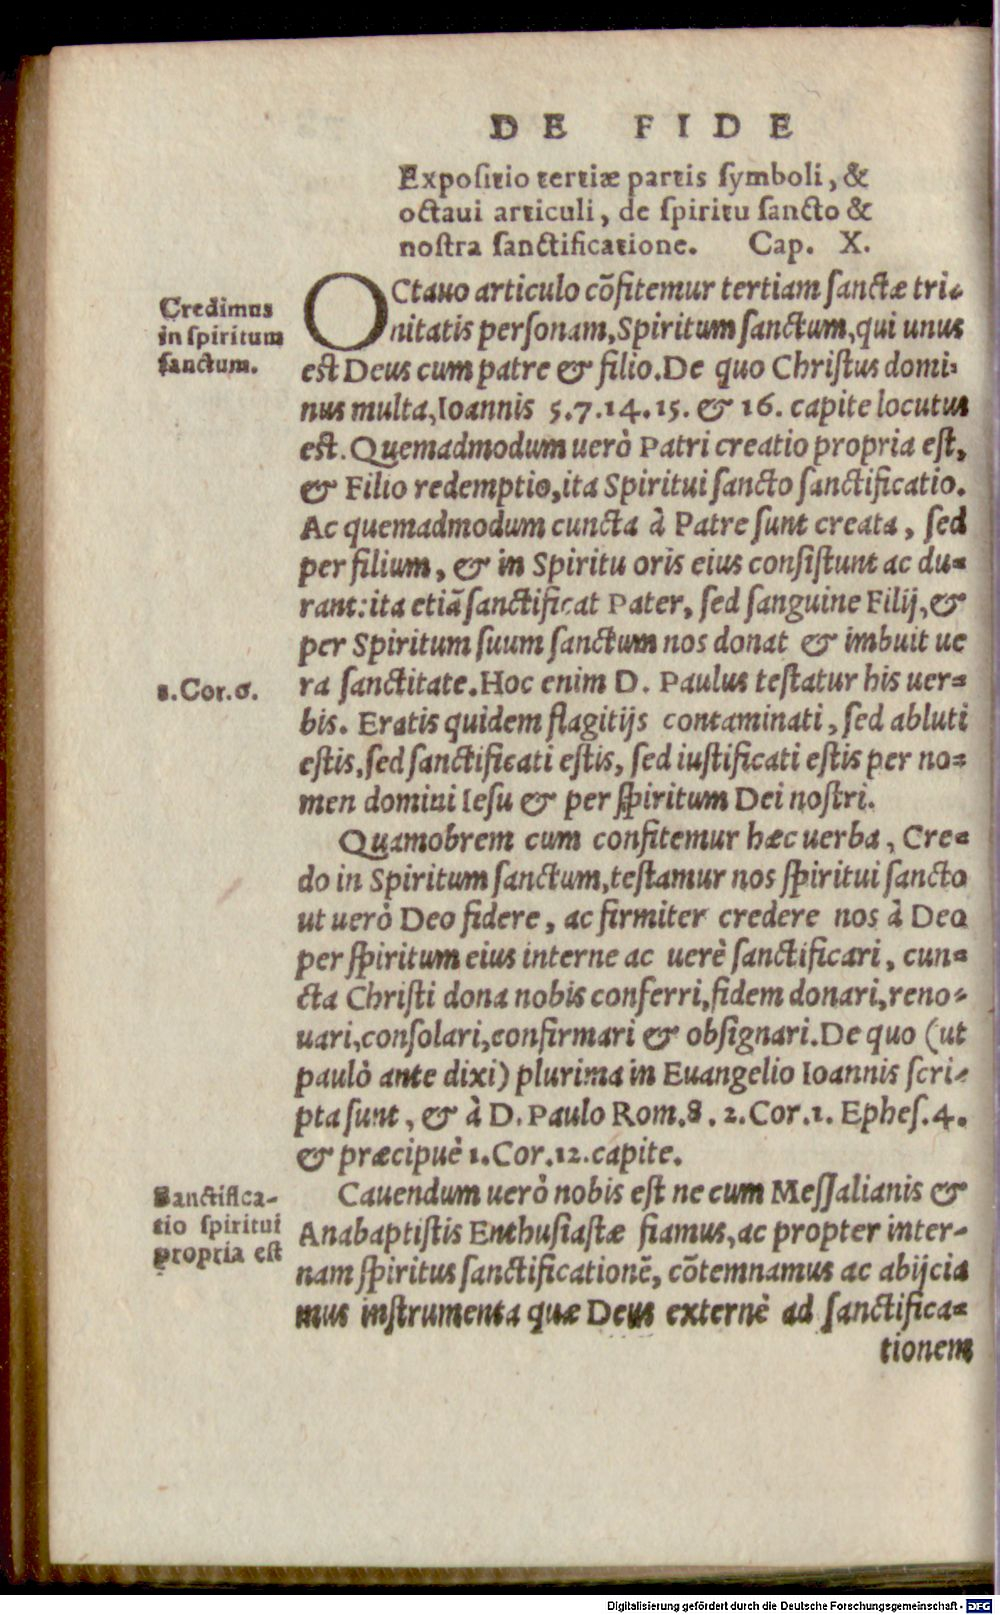 DE FIDE
Expositio tertiæ partis symboli, &
octaui articuli, de spiritu sancto &
nostra sanctificatione. Cap. X.
Credimus
in spiritum
sanctum.
OCtauo articulo cõfitemur tertiam sanctæ tri-
nitatis personam, Spiritum sanctum, qui unus
est Deus cum patre & filio. De quo Christus domi-
nus multa, Ioannis 5.7.14.15. & 16. capite locutus
est. Quemadmodum uerò Patri creatio propria est,
& Filio redemptio, ita Spiritui sancto sanctificatio.
Ac quemadmodum cuncta à Patre sunt creata, sed
per filium, & in Spiritu oris eius consistunt ac du-
rant: ita etiã sanctificat Pater, sed sanguine Filij, &
per Spiritum suum sanctum nos donat & imbuit ue
1.Cor.6.
ra sanctitate. Hoc enim D. Paulus testatur his uer-
bis. Eratis quidem flagitijs contaminati, sed abluti
estis, sed sanctificati estis, sed iustificati estis per no-
men domini Iesu & per spiritum Dei nostri.
Quamobrem cum confitemur hæc uerba, Cre-
do in Spiritum sanctum, testamur nos spiritui sancto
ut uerò Deo fidere, ac firmiter credere nos à Deo
per spiritum eius interne ac uerè sanctificari, cun-
cta Christi dona nobis conferri, fidem donari, reno-
uari, consolari, confirmari & obsignari. De quo (ut
paulò ante dixi) plurima in Euangelio Ioannis scri-
pta sunt, & à D. Paulo Rom.8. 2.Cor.1. Ephes.4.
& præcipuè 1.Cor.12.capite.
Sanctifica-
tio spiritui
propria est
Cauendum uerò nobis est ne cum Messalianis &
Anabaptistis Enthusiastæ fiamus, ac propter inter-
nam spiritus sanctificationẽ, cõtemnamus ac abijcia
mus instrumenta quæ Deus externè ad sanctifica-
tionem
Digitalisierung gefördert durch die Deutsche Forschungsgemeinschaft - DFG